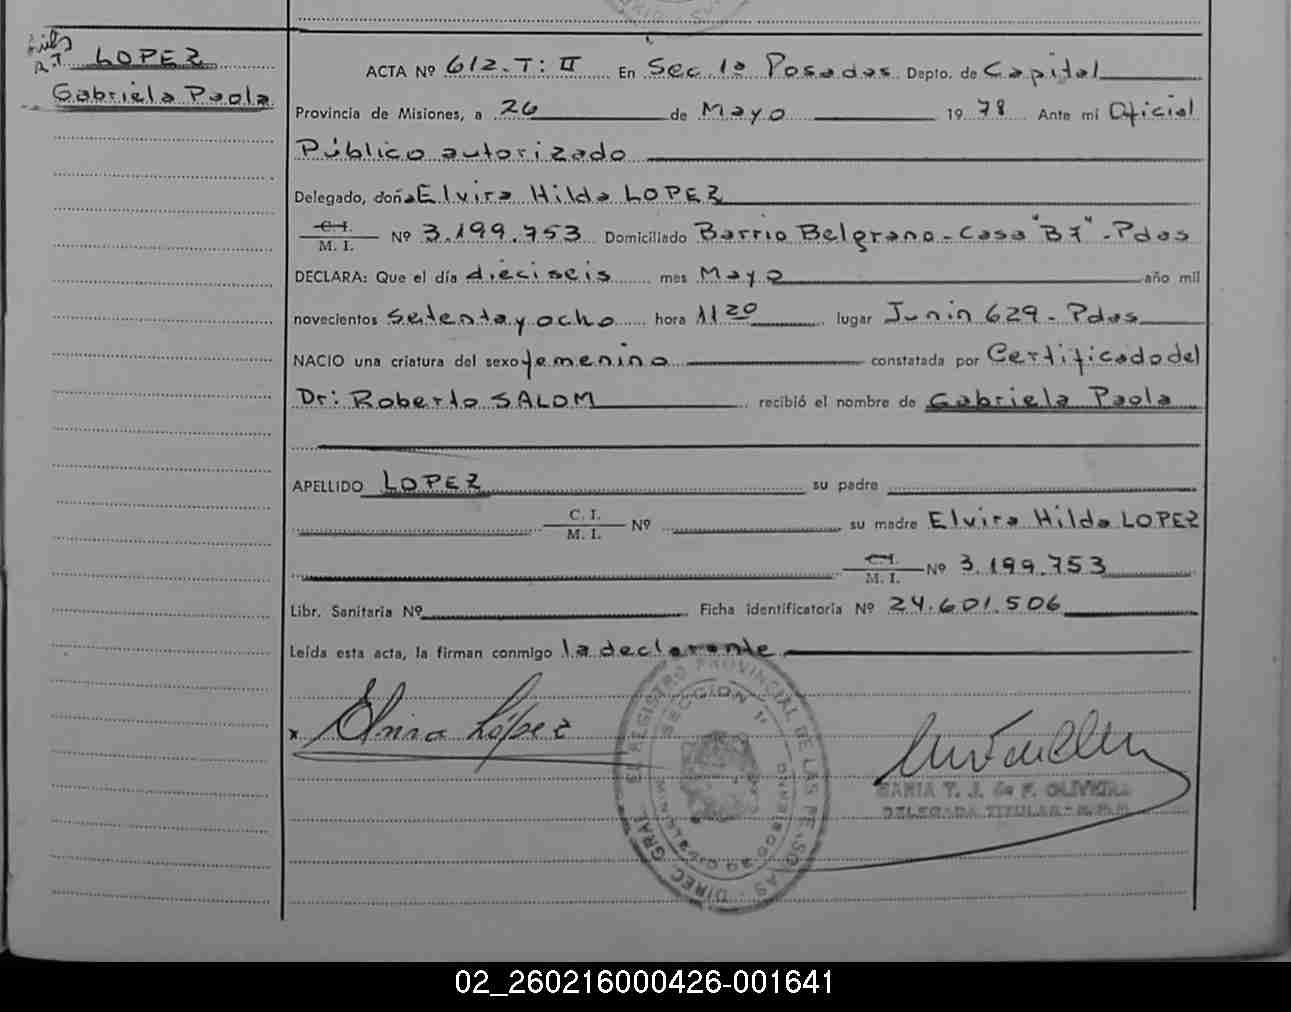 LOPEZ
Gabriela Paola
ACTA Nº 612.T: II En Sec. 1a Posadas Depto. de Capital
Provincia de Misiones, a 26 de Mayo 19 78 Ante mi Oficial
Público autorizado
Delegado, doña Elvira Hilda LOPEZ
C.I.
M. I. Nº 3.199.753 Domiciliado Barrio Belgrano - Casa "B7" - Pdas
DECLARA: Que el día dieciseis mes Mayo año mil
novecientos setenta y ocho hora 11 20 lugar Junin 629 - Pdas
NACIO una criatura del sexo femenino constatada por Certificado del
Dr: Roberto SALOM recibió el nombre de Gabriela Paola
APELLIDO LOPEZ su padre
C. I.
M. I. Nº su madre Elvira Hilda LOPEZ
C.I.
M. I. Nº 3.199.753
Libr. Sanitaria Nº Ficha identificatoria Nº 24.601.506
Leída esta acta, la firman conmigo la declarante
x Elvira López
MARIA T. J. de F. OLIVEIRA
DELEGADA TITULAR
DIREC. GRAL. REGISTRO PROVINCIAL DE LAS PERSONAS
SECCION 1a
02_260216000426-001641